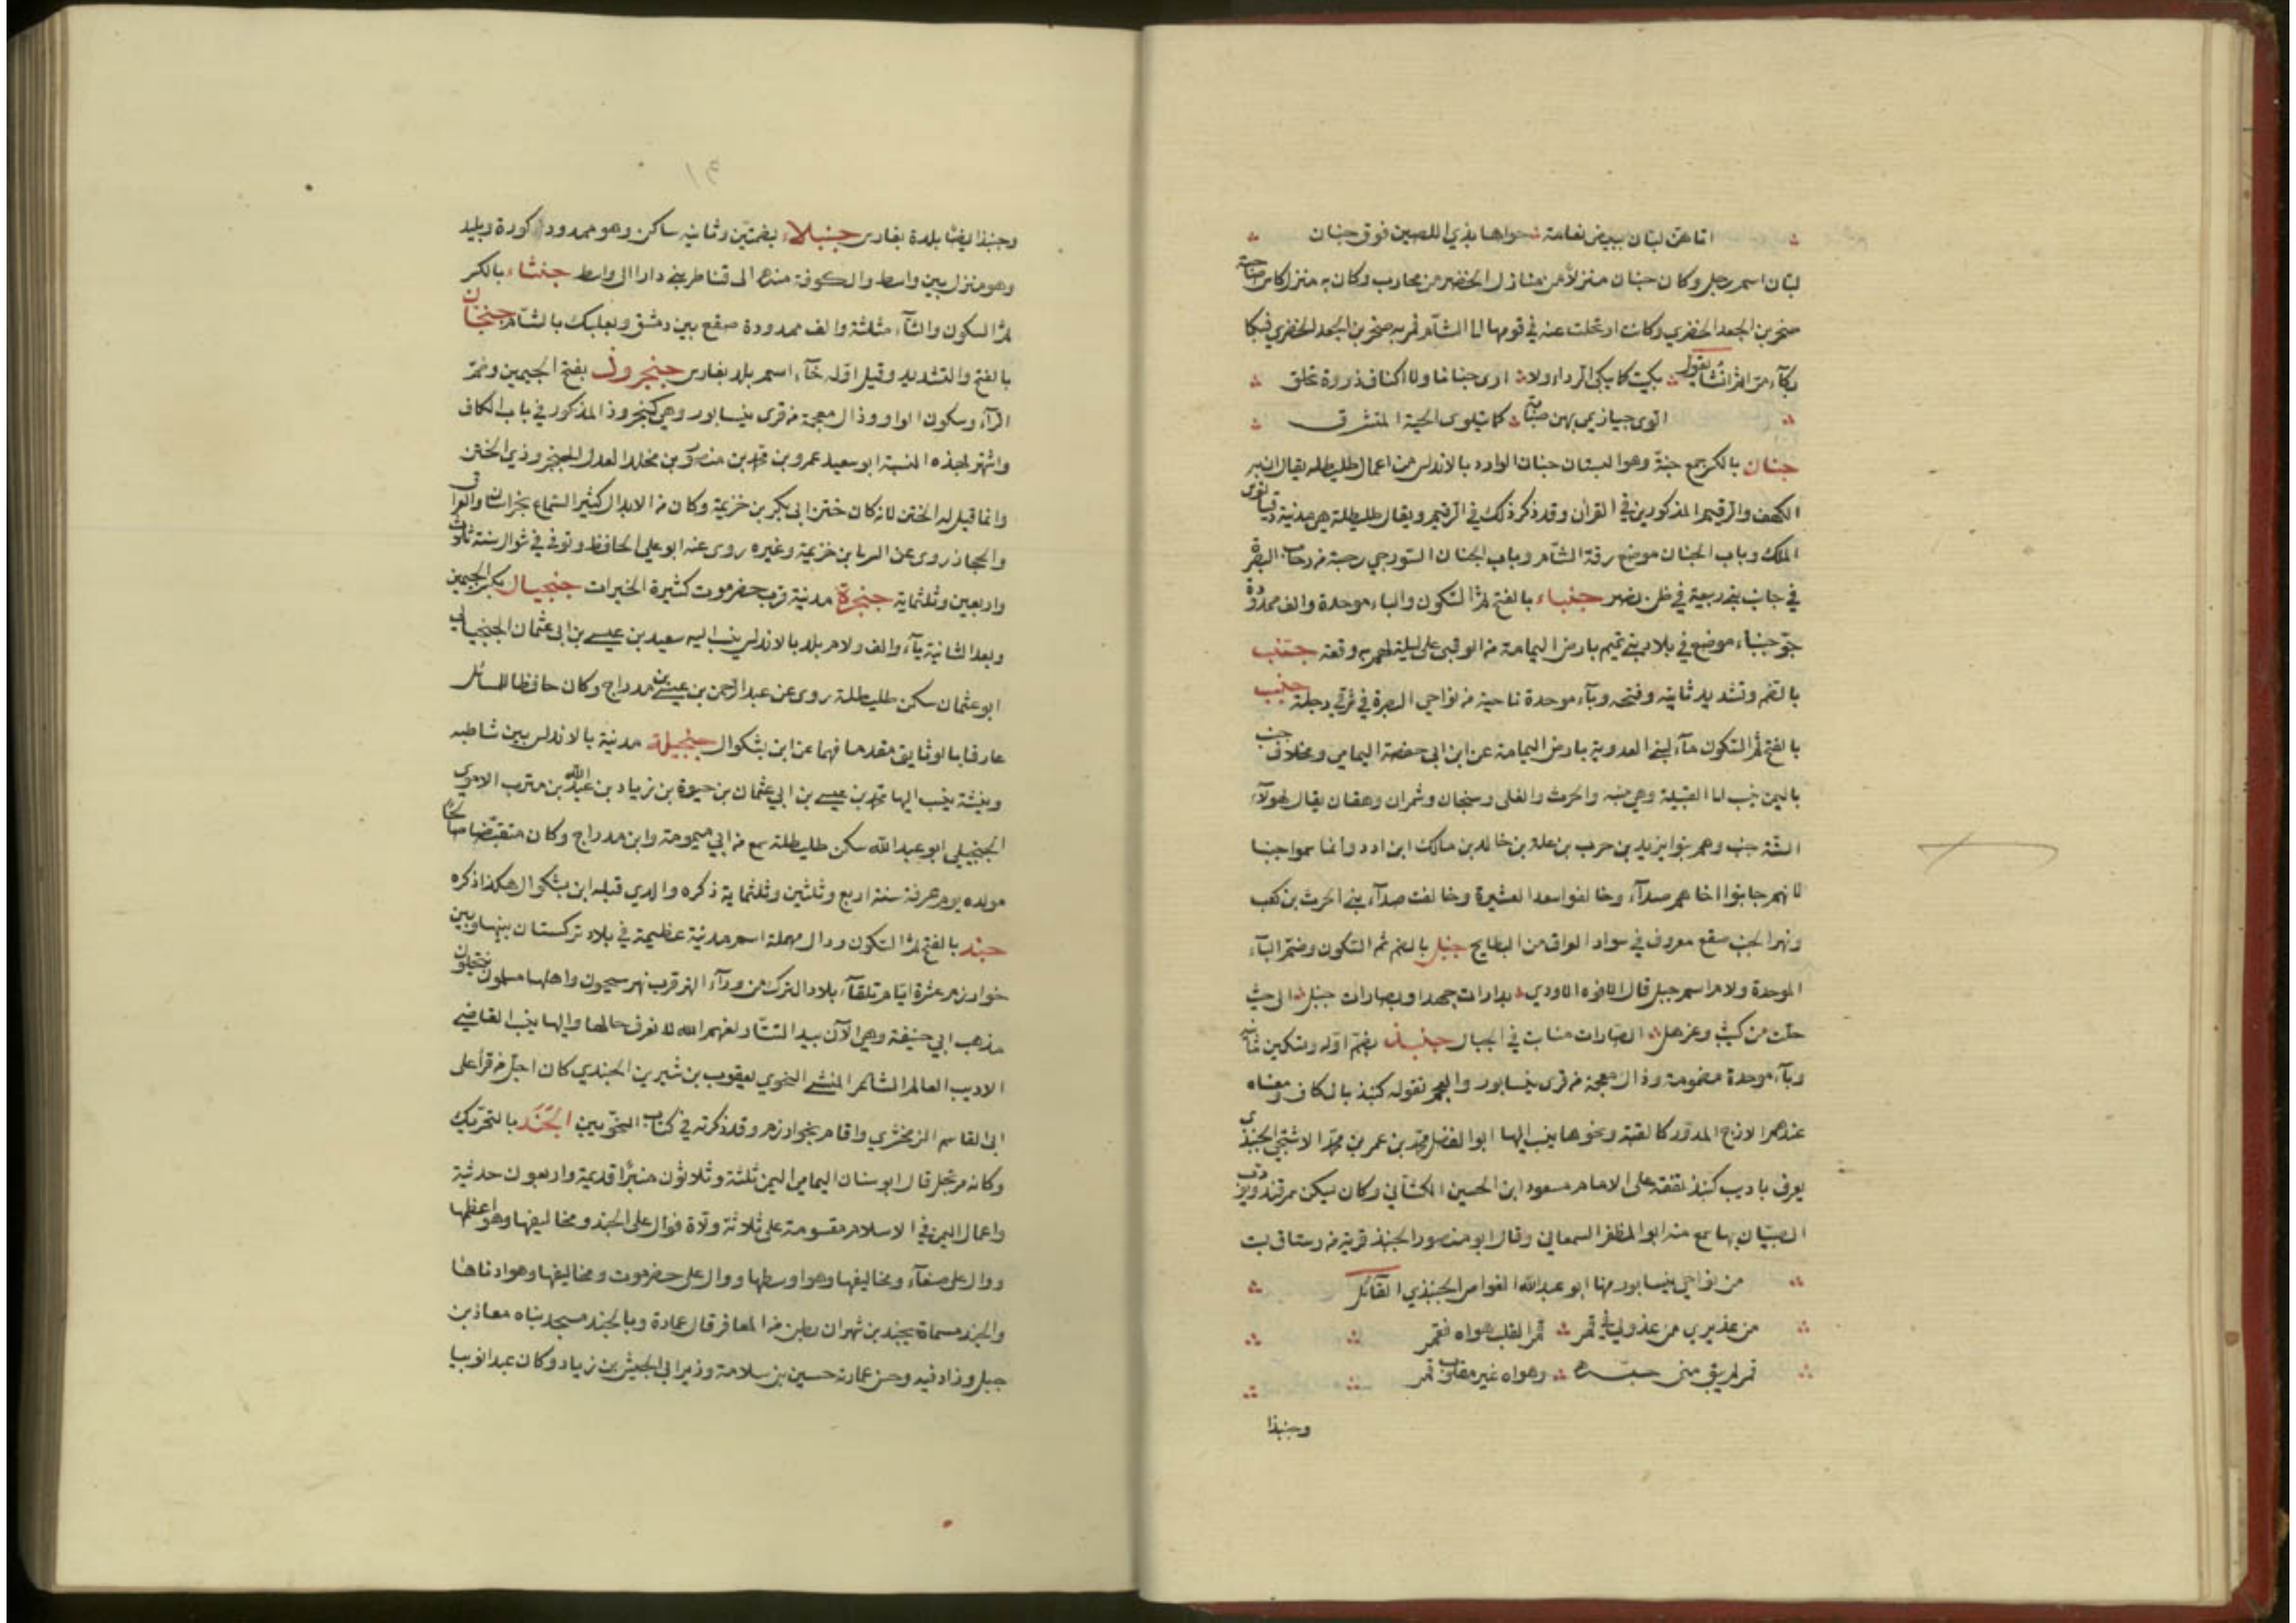 اتاهن لبان ببيض نعامة حواها بذي اللصبين فوق جنان
لبان اسم رجل وكان جنان منزلا من منازل الخضر من محارب وكان به منزل كاس صاحبة
صخر بن الجعد الخضري وكانت ارتحلت عنه في قومها الى الشآم فمر به صخر بن الجعد الخضري فبكا
بكآء مرا ثم انشأ يقول بكيت كما يبكي الرداء ولا ارى جنانا ولا اكناف ذروة تخلق
الوى حيازيمي بهن صبابة كما يتلوى الحية المتشرق
جنان بالكسر جمع جنة وهو البستان جنان الورد بالاندلس من اعمال طليطلة يقال ان بها
الكهف والرقيم المذكورين في القرآن وقد ذكر ذلك في الرقيم ويقال طليطلة هي مدينة دقيانوس
الملك وباب الجنان موضع برقة الشآم وباب الجنان السورجي رحبة من رحاب البصرة
في جانب بني ربيعة في ظن نصر جنباء بالفتح ثم السكون والباء موحدة والف ممدودة
جو جنباء موضع في بلاد بني تميم بارض اليمامة من الوقبى على ليلة لهم به وقعة جنب
بالضم وتشديد ثانيه وفتحه وبآء موحدة ناحية من نواحي البصرة في شرقي دجلة جنب
بالفتح ثم السكون مآء لبني العدوية بارض اليمامة عن ابن ابي حفصة اليمامي ومخلاف جنب
باليمن ينسب الى القبيلة وهي منبه والحرث والغلى وسنحان وشمران وهفان يقال لهولآء
الستة جنب وهم بنوا يزيد بن حرب بن علة بن خالد بن مالك ابن ادد وانما سموا جنبا
لانهم جانبوا اخاهم صدآء وحالفوا سعد العشيرة وحالفت صدآء بني الحرث بن كعب
ونهر الجنب صقع معروف في سواد العراق من البطايح جنبل بالضم ثم السكون وضم البآء
الموحدة ولام اسم جبل قال الافوه الاودي بدارات جهد او بصارات جنبل الى حيث
حلت من كثيب وعزهل الصارات منابت في الجبال جنبذ بضم اوله وتسكين ثانيه
وبآء موحدة مضمومة وذال معجمة من قرى نيسابور والعجم تقوله كنبذ بالكاف ومعناه
عندهم الازج المدور كالقبة ونحوها ينسب اليها ابو الفضل محمد بن عمر بن محمد الاشتجي الجنبذي
يعرف باديب كنبذ تفقه على الامام مسعود ابن الحسين الكشاني وكان يسكن سمرقند ويؤدب
الصبيان بها سمع منه ابو المظفر السمعاني وقال ابو منصور الجنبذ قرية من رستاق بست
من نواحي نيسابور منها ابو عبد الله الغواص الجنبذي القائل
من عذيري من عذولي في قمر قمر القلب هواه فقمر
قمر لم يبق مني حبه وهواه غير مقلوب قمر
وجنبذا
٩١
وجنبذ ايضا بلدة بفارس جنبلاء بضمتين وثانيه ساكن وهو ممدود كورة وبليد
وهو منزل بين واسط والكوفة منه الى قناطر بني دارا الى واسط جنثاء بالكسر
ثم السكون والثآء مثلثة والف ممدودة صقع بين دمشق وبعلبك بالشآم جنجان
بالفتح والتشديد وقيل اوله خآء اسم بلد بفارس جنجروذ بفتح الجيمين وضم
الرآء وسكون الواو وذال معجمة من قرى نيسابور وهي كنجروذ المذكور في باب الكاف
واشهر بهذه النسبة ابو سعيد عمرو بن محمد بن منصور بن مخلد العدل الجنجروذي الختن
وانما قيل له الختن لانه كان ختن ابي بكر بن خزيمة وكان من الابدال كثير السماع بخراسان والعراق
والحجاز روى عن السريا بن خزيمة وغيره روى عنه ابو علي الحافظ وتوفي في شوال سنة ثلاث
واربعين وثلثماية جنجرة مدينة قرب حضرموت كثيرة الخيرات جنجيال بكسر الجيمين
وبعد الثانية يآء والف ولام بلد بالاندلس ينسب اليه سعيد بن عيسى بن ابي عثمان الجنجيالي
ابو عثمان سكن طليطلة روى عن عبد الرحمن بن عيسى بن مدراج وكان حافظا للمسائل
عارفا بالوثايق مقدما فهما عن ابن بشكوال جنجيلة مدينة بالاندلس بين شاطبة
وبنشة ينسب اليها محمد بن عيسى بن ابي عثمان بن حيوة بن زياد بن عبد الله بن مترب الاموي
الجنجيلي ابو عبد الله سكن طليطلة سمع من ابي ميمومة وابن مدراج وكان متقبضا صالحا
مولده يوم عرفة سنة اربع وثلثين وثلثماية ذكره والذي قبله ابن بشكوال هكذا ذكره
جند بالفتح ثم السكون ودال مهملة اسم مدينة عظيمة في بلاد تركستان بينها وبين
خوارزم عشرة ايام تلقآء بلاد الترك من ورآء النهر قرب نهر سيحون واهلها مسلمون ينتحلون
مذهب ابي حنيفة وهي الآن بيد التتار لعنهم الله لا نعرف حالها واليها ينسب القاضي
الاديب العالم الشاعر المنشي النحوي يعقوب بن شيرين الجندي كان اجل من قرأ على
ابي القاسم الزمخشري واقام بخوارزم وقد ذكرته في كتاب النحويين الجَنَد بالتحريك
وكانه مرتجل قال ابو سنان اليمامي اليمن ثلثة وثلاثون منبرا قديمة واربعون حديثة
واعمال اليمن في الاسلام مقسومة على ثلاثة ولاة فوال على الجند ومخاليفها وهو اعظمها
ووال على صنعآء ومخاليفها وهو اوسطها ووال على حضرموت ومخاليفها وهو ادناها
والجند مسماة بجند بن شهران بطن من المعافر قال عمارة وبالجند مسجد بناه معاذ بن
جبل وزاد فيه وحسن عمارته حسين بن سلامة وزير ابي الجيش بن زياد وكان عبدا نوبيا